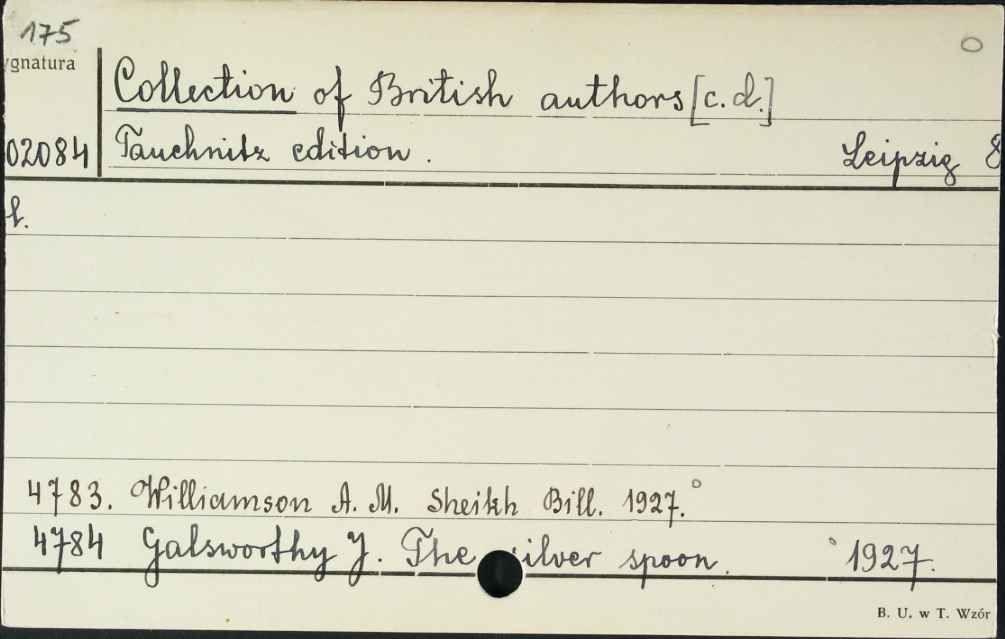 175
ygnatura
Collection of British authors [c.d.]
02084 Tauchnitz edition. Leipzig 8
t.
4783. Williamson A. M. Sheikh Bill. 1927.°
4784 Galsworthy J. The silver spoon. ° 1927.
B. U. w T. Wzór